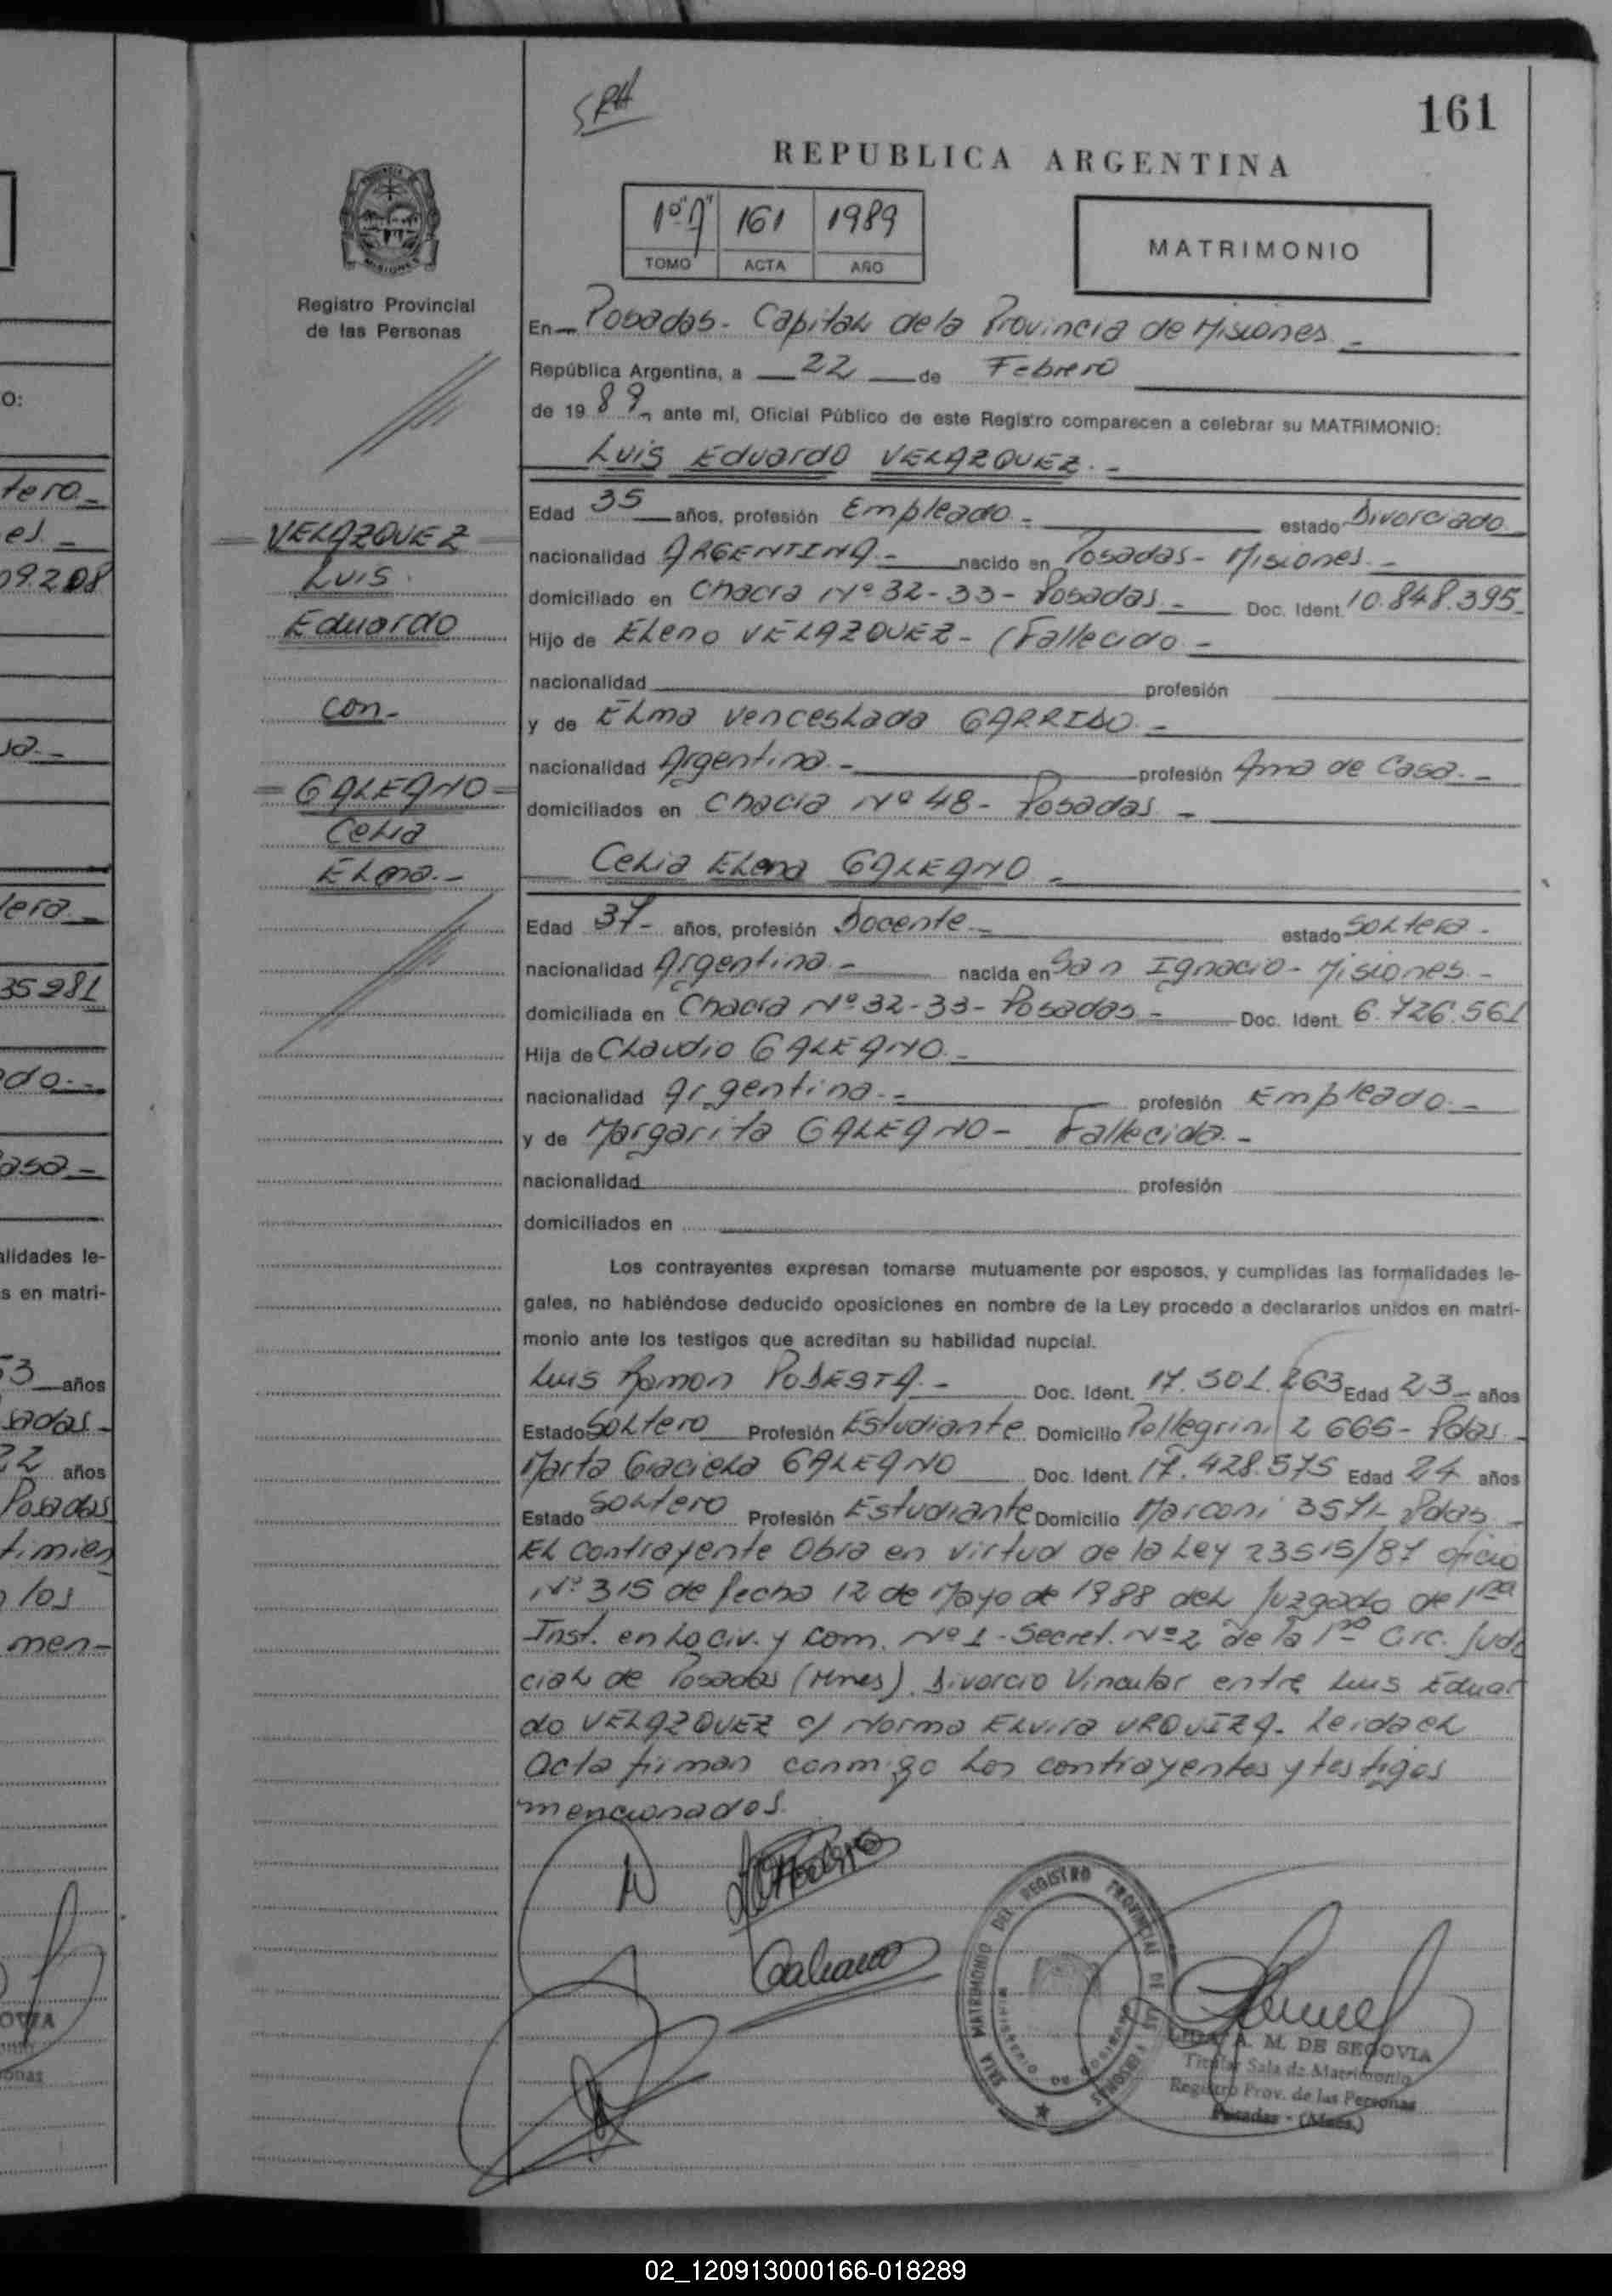 SRH
161
REPUBLICA ARGENTINA
1º "A" 161 1989
TOMO ACTA AÑO
MATRIMONIO
Registro Provincial
de las Personas
En Posadas - Capital de la Provincia de Misiones -
República Argentina, a 22 de Febrero
de 19 89, ante mí, Oficial Público de este Registro comparecen a celebrar su MATRIMONIO:
Luis Eduardo VELAZQUEZ. -
Edad 35 años, profesión Empleado - estado Divorciado
nacionalidad ARGENTINA - nacido en Posadas - Misiones. -
domiciliado en Chacra Nº 32-33 - Posadas. - Doc. Ident. 10.848.395
Hijo de Eleno VELAZQUEZ - (Fallecido -
nacionalidad profesión
y de Elma Venceslada GARRIDO. -
nacionalidad Argentina. - profesión Ama de Casa. -
domiciliados en Chacra Nº 48 - Posadas -
VELAZQUEZ
Luis
Eduardo
con -
GALEANO
Celia
Elena. -
Celia Elena GALEANO -
Edad 37 - años, profesión Docente. - estado Soltera -
nacionalidad Argentina. - nacida en San Ignacio - Misiones. -
domiciliada en Chacra Nº 32-33 - Posadas - Doc. Ident. 6.726.561
Hija de Claudio GALEANO. -
nacionalidad Argentina. - profesión Empleado. -
y de Margarita GALEANO - Fallecida. -
nacionalidad profesión
domiciliados en
Los contrayentes expresan tomarse mutuamente por esposos, y cumplidas las formalidades le-
gales, no habiéndose deducido oposiciones en nombre de la Ley procedo a declararlos unidos en matri-
monio ante los testigos que acreditan su habilidad nupcial.
Luis Ramon PODESTA. - Doc. Ident. 17.501.263 Edad 23 - años
Estado Soltero Profesión Estudiante Domicilio Pellegrini 2665 - Pdas. -
Marta Graciela GALEANO Doc. Ident. 17.428.575 Edad 24 años
Estado Soltero Profesión Estudiante Domicilio Marconi 3571 - Pdas -
El contrayente Obra en virtud de la Ley 23515/87 oficio
Nº 315 de fecha 12 de Mayo de 1988 del Juzgado de 1ra
Inst. en lo Civ. y Com. Nº 1 - Secret. Nº 2 de la 1ra Circ. Judi
cial de Posadas (Mnes). Divorcio Vincular entre Luis Eduar
do VELAZQUEZ c/ Norma Elvira URQUIZA. Leida el
Acta firman conmigo los contrayentes y testigos
mencionados.
Galeano
SALA MATRIMONIO DEL REGISTRO PROVINCIAL DE LAS PERSONAS
MINISTERIO DE GOBIERNO
A. M. DE SEGOVIA
Titular Sala de Matrimonio
Registro Prov. de las Personas
Posadas - (Mnes.)
tero -
es. -
09.208
sa. -
tera -
35281
do. -
asa -
alidades le-
s en matri-
53 años
sadas -
22 años
Posadas
timien
los
men-
OVIA
onas
02_120913000166-018289